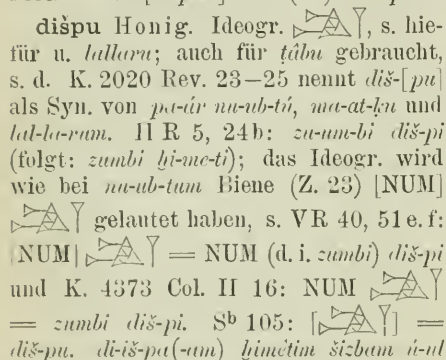 dišpu Honig. Ideogr. , s. hie-
für u. lallaru; auch für ṭâbu gebraucht,
s. d. K. 2020 Rev. 23—25 nennt diš-[pu]
als Syn. von pa-ár nu-ub-tú, ma-at-ḳu und
lal-la-ram. II R 5, 24b: zu-um-bi diš-pi
(folgt: zumbi ḫi-me-ti); das Ideogr. wird
wie bei nu-ub-tum Biene (Z. 23) [NUM]
gelautet haben, s. VR 40, 51 e. f:
[NUM] = NUM (d. i. zumbi) diš-pi
und K. 4373 Col. II 16: NUM
= zumbi diš-pi. Sᵇ 105: [ ] =
diš-pu. di-iš-pa(-am) ḫimêtim šizbam ú-ul